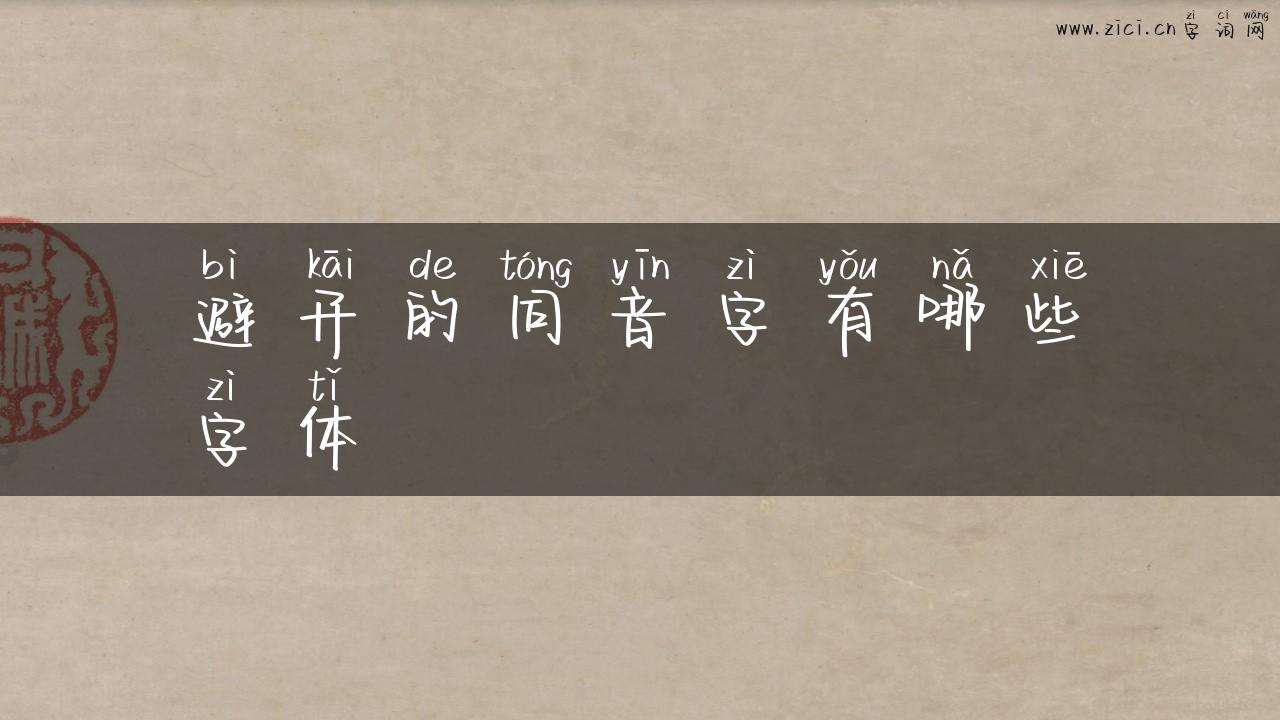 zì cí wǎng
www.zici.cn 字词网
bì kāi de tóng yīn zì yǒu nǎ xiē
避开的同音字有哪些
zì tǐ
字体